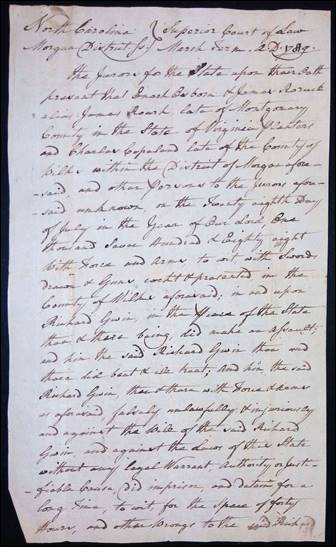 North Carolina } Superior Court of Law
Morgan District ss } March Term A.D. 1789.
The Jurors for the State upon their Oath
present that Enoch Osborn & James
alias James late of Montgomery
County in the State of Virginia Planters
and Charles Copeland late of the County of
Wilkes within the District of Morgan afore-
-said and other Persons to the Jurors afore-
-said unknown on the Twenty eighth Day
of July in the Year of Our Lord One
thousand Seven Hundred & Eighty eight
With Force and Arms to wit, with Swords
drawn & Guns cockt & presented in the
County of Wilkes aforesaid; in and upon
Richard Gwin, in the Peace of the State
then & there being, did make an Assault;
and him the said Richard Gwin then and
there did beat & ill treat, and him the said
Richard Gwin, then & there with Force & arms
as aforesaid, falsely unlawfully & injuriously
and against the Will of the said Richard
Gwin, and against the Laws of this State
without any legal Warrant Authority or justi-
-fiable Cause, did imprison, and detain for a
long Time, to wit, for the Space of forty
Hours, and other Wrongs to the said Richard